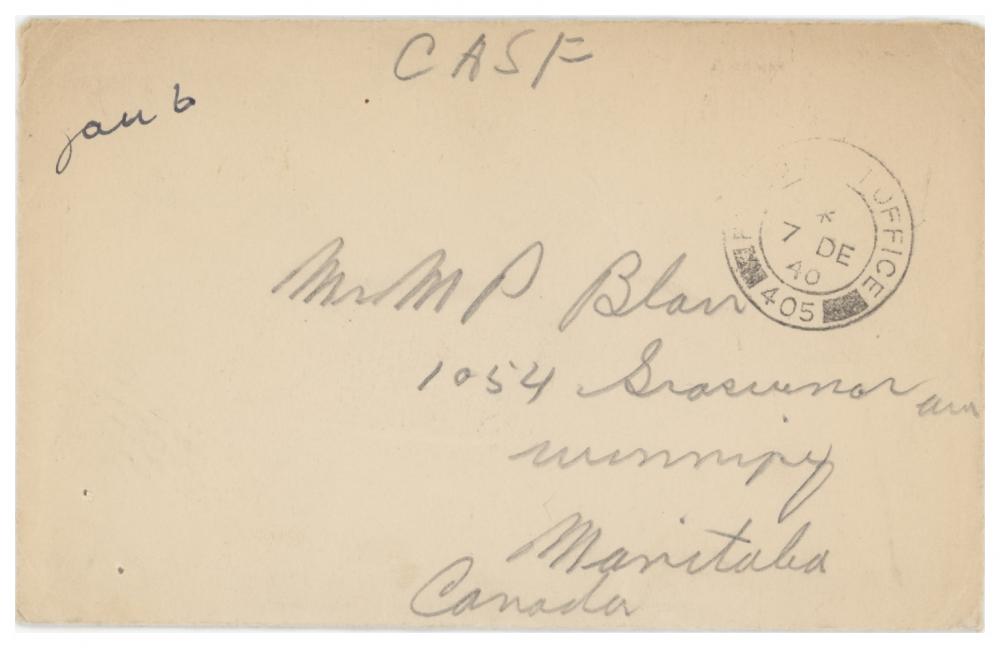 CASF
Jan 6
OFFICE
7 DE
40
405
Mr M P Blair
1054 Grosvenor
Winnipeg
Manitoba
Canada